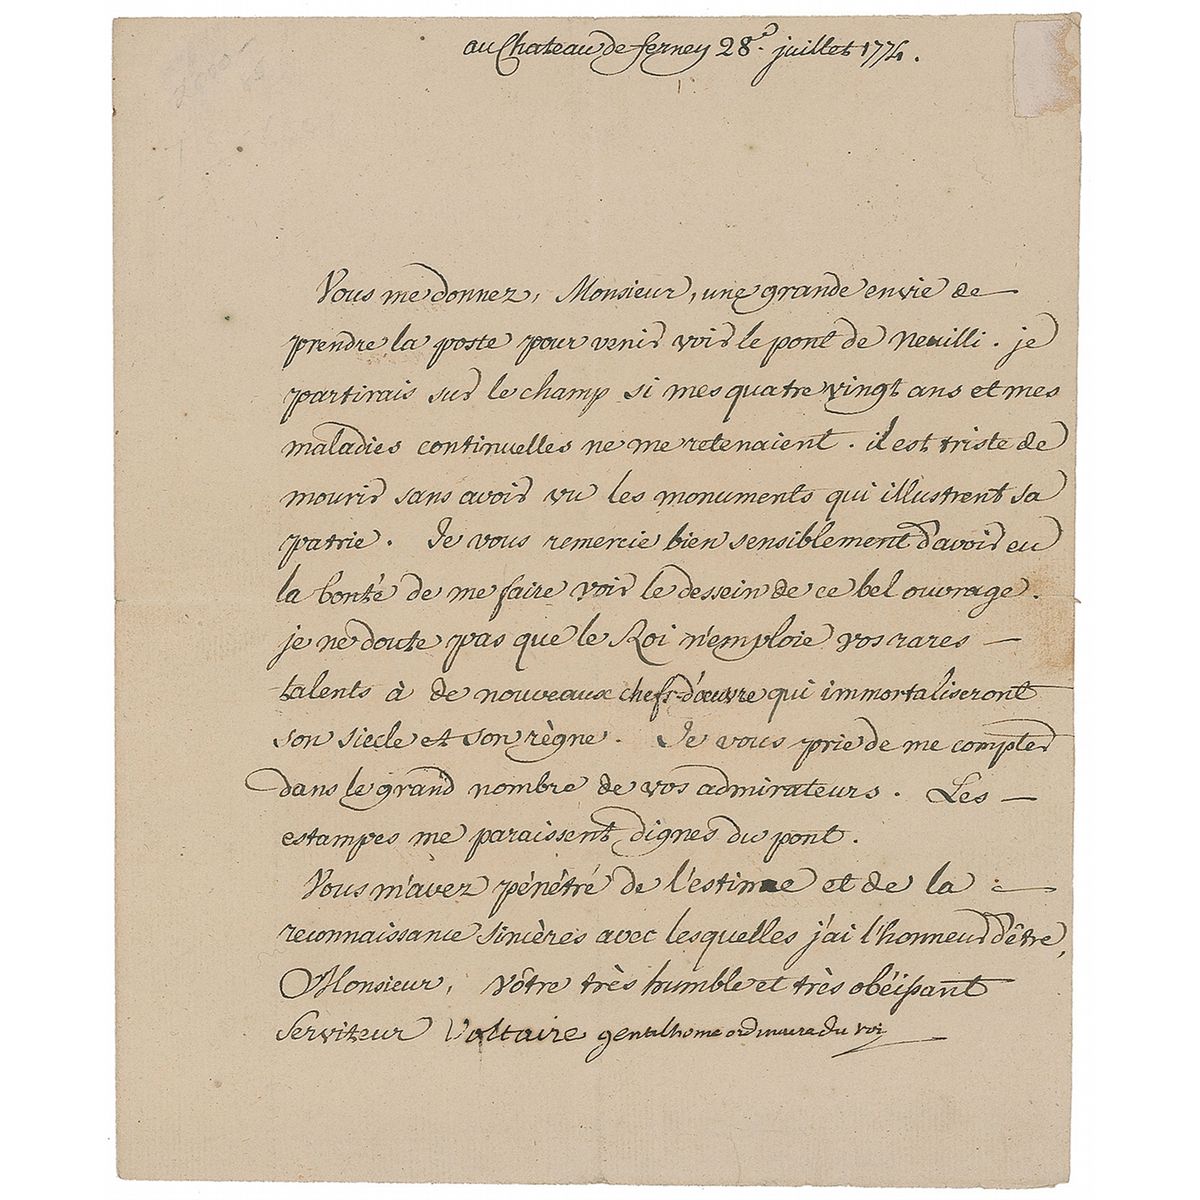 au Chateau de ferney 28e. juillet 1774.
Vous me donnez, Monsieur, une grande envie de
prendre la poste pour venir voir le pont de Neuilli. je
partirais sur le champ si mes quatre vingt ans et mes
maladies continuelles ne me retenaient. il est triste de
mourir sans avoir vu les monuments qui illustrent sa
patrie. Je vous remercie bien sensiblement d'avoir eu
la bonté de me faire voir le dessein de ce bel ouvrage.
je ne doute pas que le Roi n'emploie vos rares
talents à de nouveaux chefs-d'œuvre qui immortaliseront
son siecle et son règne. Je vous prie de me compter
dans le grand nombre de vos admirateurs. Les
estampes me paraissent dignes du pont.
Vous m'avez pénétré de l'estime et de la
reconnaissance sincères avec lesquelles j'ai l'honneur d'être,
Monsieur, vôtre très humble et très obéissant
Serviteur Voltaire gentilhome ordinaire du roi